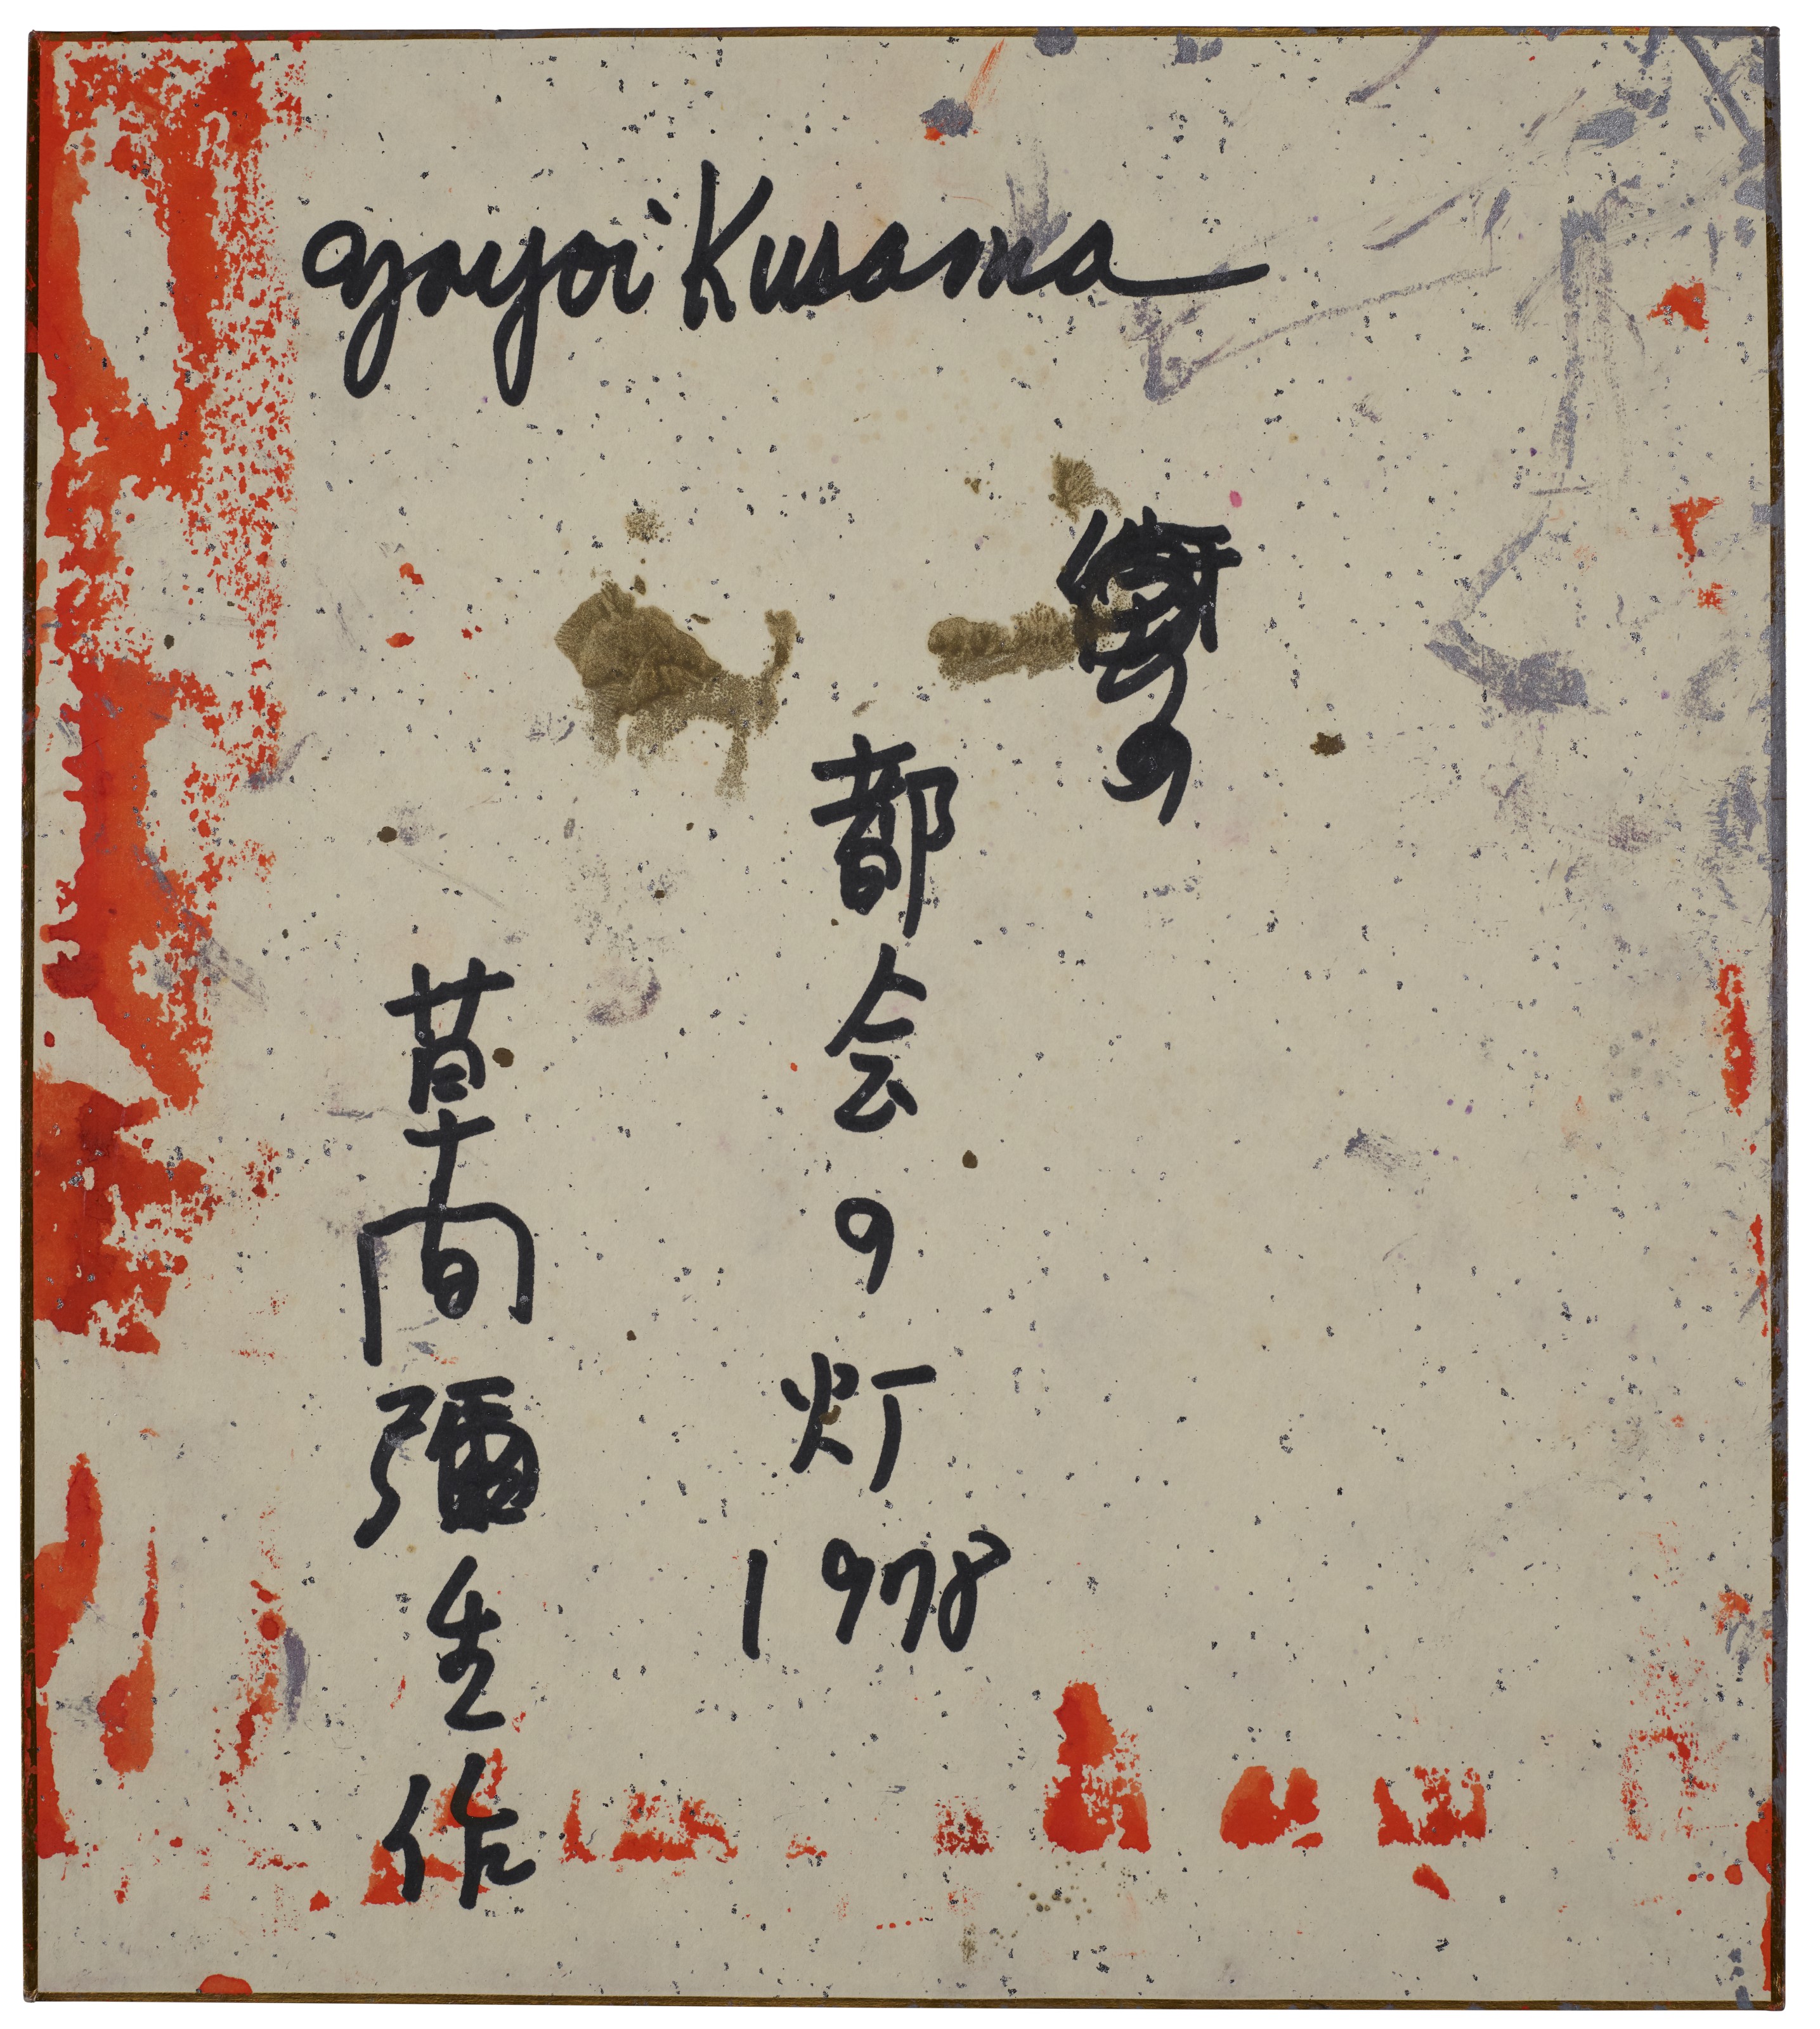 Yayoi Kusama
都会の灯
1978
草間彌生作